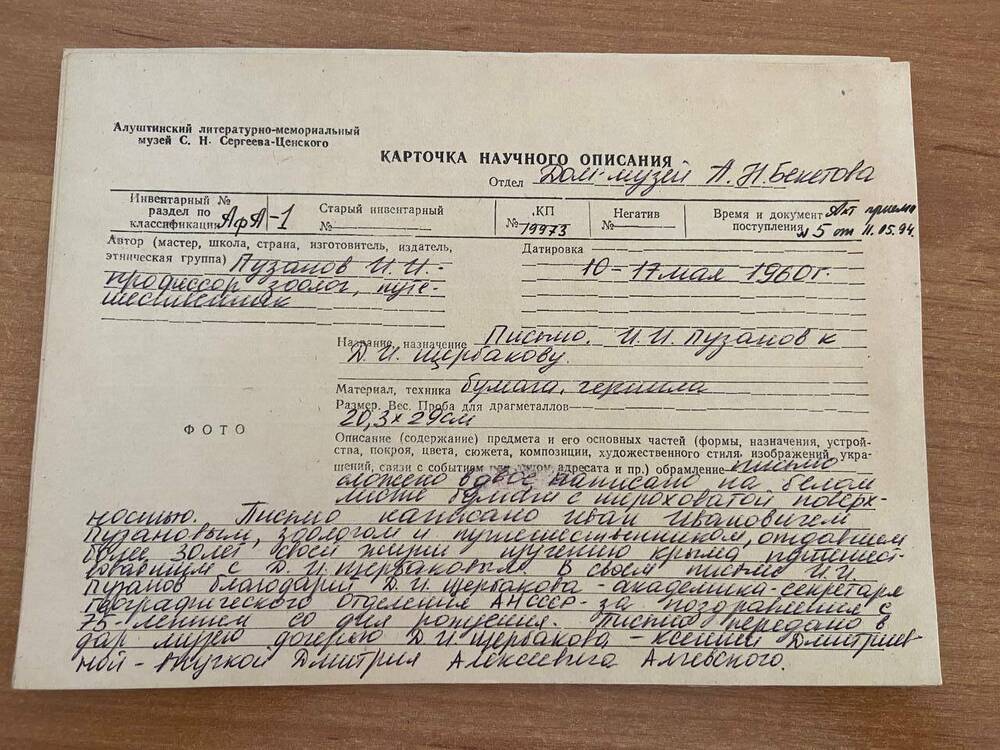 Алуштинский литературно-мемориальный
музей С. Н. Сергеева-Ценского
КАРТОЧКА НАУЧНОГО ОПИСАНИЯ
Отдел Дом-музей А.Н.Бекетова
Инвентарный №
раздел по
классификации АфА-1
Старый инвентарный
№
КП
№ 19973
Негатив
№
Время и документ Акт приема
поступления № 5 от 11.05.94.
Автор (мастер, школа, страна, изготовитель, издатель,
этническая группа) Пузанов И.И.-
профессор зоолог, путе-
шественник
Датировка
10-17 мая 1960г.
Название, назначение Письмо. И.И. Пузанов к
Д.И. Щербакову.
Материал, техника бумага, чернила
Размер. Вес. Проба для драгметаллов
20,3 х 29см
ФОТО
Описание (содержание) предмета и его основных частей (формы, назначения, устрой-
ства, покроя, цвета, сюжета, композиции, художественного стиля, изображений, укра-
шений, связи с событием или лицом, адресата и пр.) обрамление письмо
сложено вдвое написано на белом
листе бумаги с шероховатой поверх-
ностью. Письмо написано Иван Ивановичем
Пузановым, зоологом и путешественником, отдавшем
более 30 лет своей жизни изучению Крыма путешест-
вовавшим с Д.И. Щербаковым. В своем письме И.И.
Пузанов благодарит Д.И. Щербакова - академика-секретаря
географического отделения АН СССР - за поздравления с
75-летием со дня рождения. Письмо передано в
дар музею дочерью Д.И. Щербакова - Ксенией Дмитриев-
ной - внучкой Дмитрия Алексеевича Алчевского.